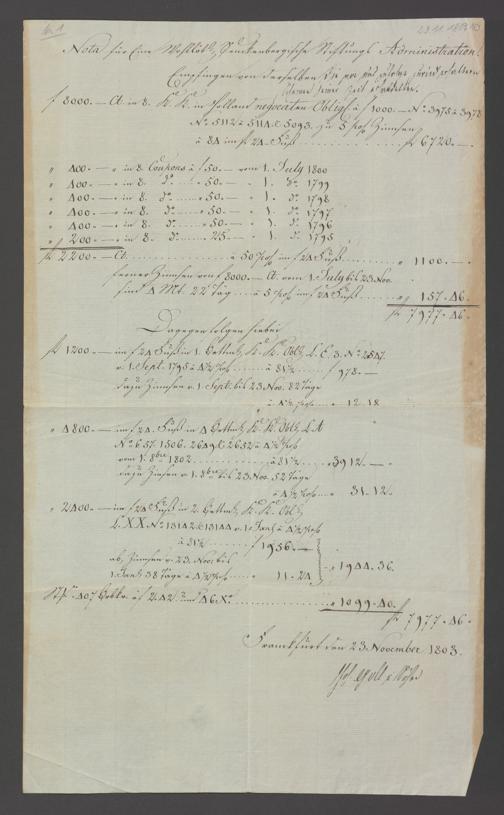 No 1
23.11.1803
Nota für Eine Wohllöbl. Senkenbergische Stiftungs Administration
Empfingen von derselben
f 8000.— Ct. in 8. K. K. in Holland negocirten Obligs à f 1000.— No 3975 à 3978
No 5112 à 5114 & 5093. zu 5 pCt Zinsen
à 84 im f 24 Fuß f 6720.—
" 400.— " in 8. Coupons à f 50.— vom 1. July 1800
" 400.— " in 8. do " 50.— " 1. do 1799
" 400.— " in 8. do " 50.— " 1. do 1798
" 400.— " in 8. do " 50.— " 1. do 1797
" 400.— " in 8. do " 50.— " 1. do 1796
" 200.— " in 8. do " 25.— " 1. do 1795
f 2200.— Ct. à 50 pCt im f 24 Fuß " 1100.—
ferner Zinsen von f 8000.— Ct. vom 1. July bis 23. Nov.
sind 4 Mt. 22 Täg à 5 pCt im f 24 Fuß " 157.46.
f 7977.46.
Dagegen folgen hiebei
f 1200.— im f 24 Fuß in 1. Bethm. K. K. Obl. L. E. 3. No
v. 1. Sept. 1795 à 4½ pCt à 81½ f 978.—
dazu Zinsen v. 1. Sept. bis 23 Nov. 82 Täge
à 4½ pCt " 12.18
" 4800.— im f 24. Fuß in 4 Bethm. K. K. Obl. L. A
No 657. 1506. 2649 & 2652 à 4½ pCt
vom 1. 8bre 1802 à 81½ " 3912.—
dazu Zinsen v. 1. 8bre bis 23 Nov. 52 Täge
à 4½ pCt " 31.12.
" 2400.— im f 24 Fuß in 2. Bethm. K. K. Obl.
L. XX. No 13142 & 13144 v. 1. Jan. à 4½ pCt
à 81½ f 1956.—
ab, Zinsen v. 23. Nov. bis
1. Jan. 38 Täge à 4½ pCt " 11.24
" 1944.36.
à f 2.42 " 1099.40.
f 7977.46.
Franckfurt den 23. November 1803.